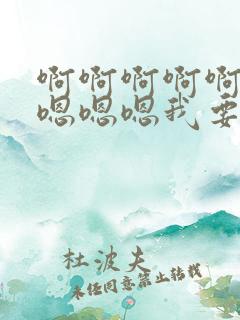 啊啊啊啊啊
嗯嗯嗯我要
杜波夫
未经同意禁止转载